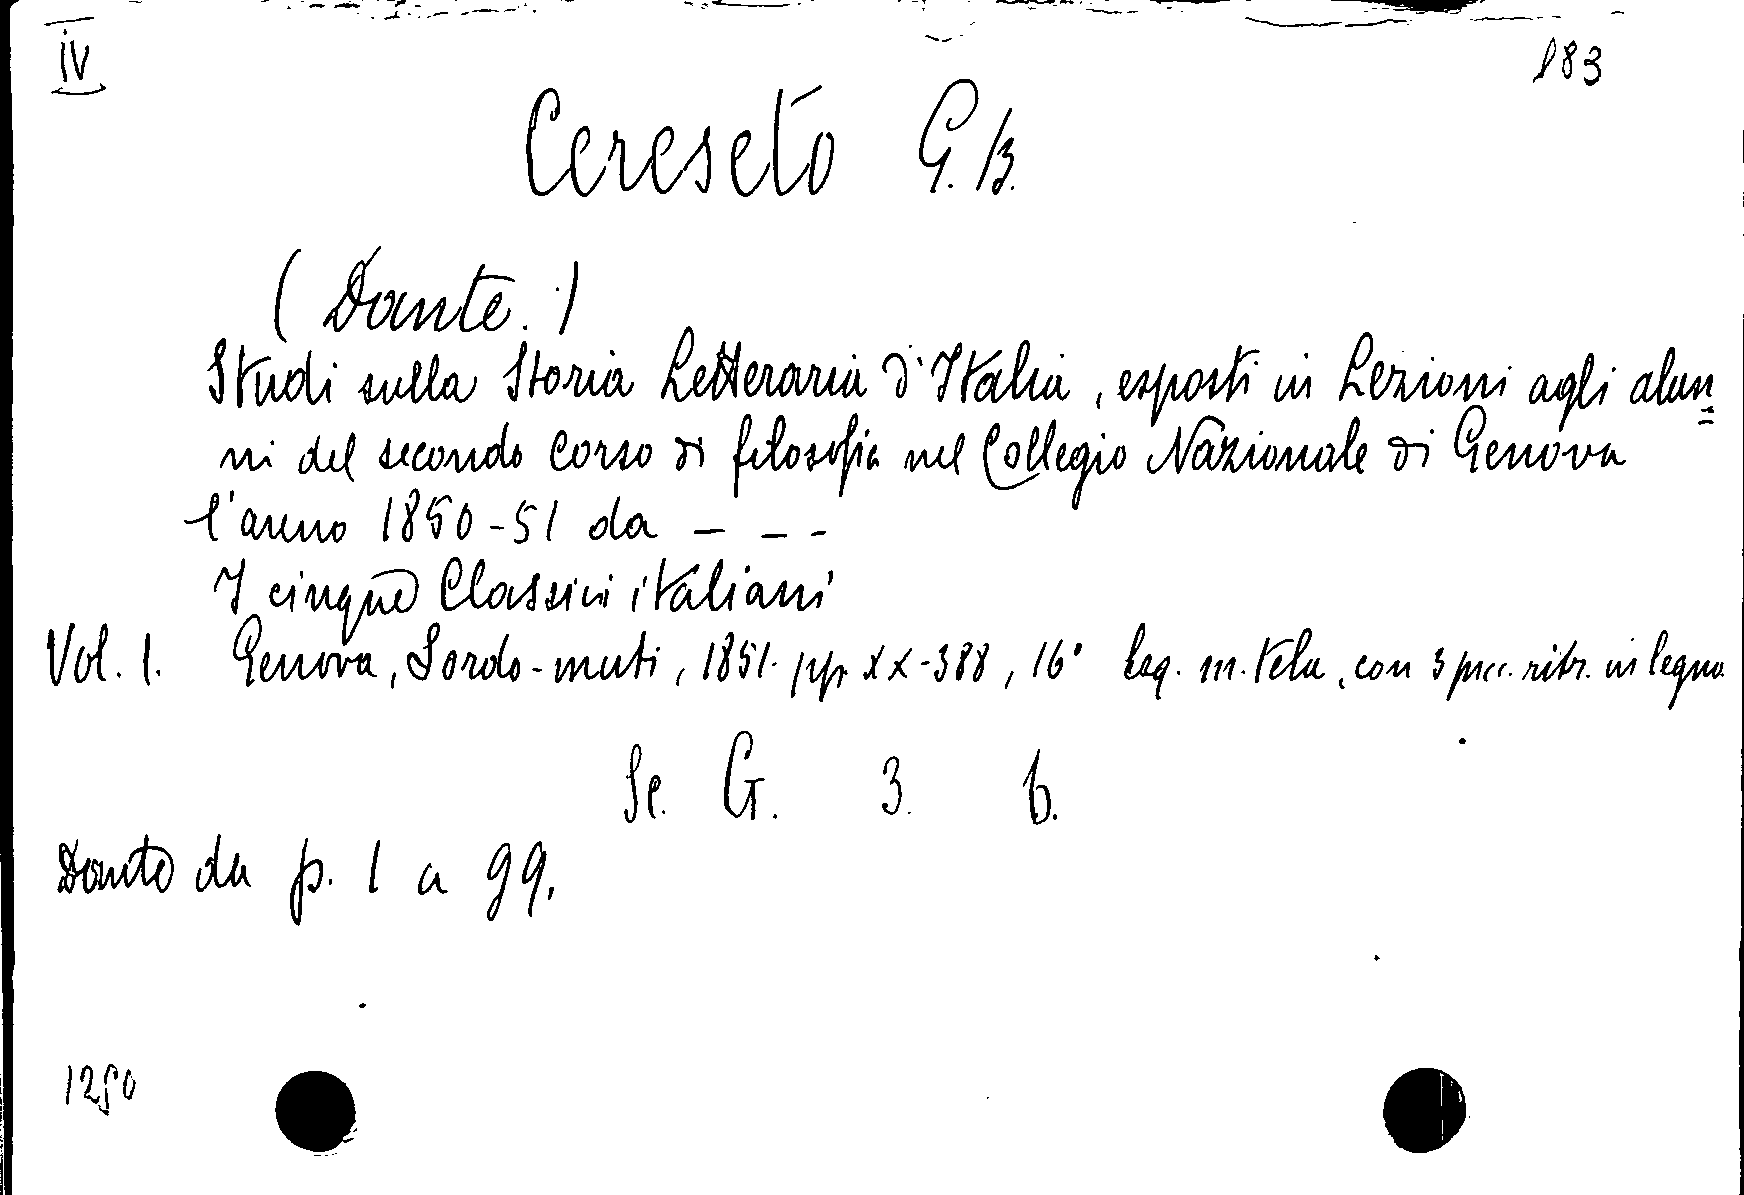 IV
183
Cereseto G. B.
(Dante.)
Studi sulla Storia Letteraria d'Italia, esposti in Lezioni agli alun=
ni del secondo corso di filosofia nel Collegio Nazionale di Genova
l'anno 1850-51 da - - -
I cinque Classici italiani
Vol. 1. Genova, Sordo-muti, 1851. pp. XX-388, 16° leg. m. tela, con 3 picc. ritr. in legno
Se. G. 3. 6.
Dante da p. 1 a 99.
1250